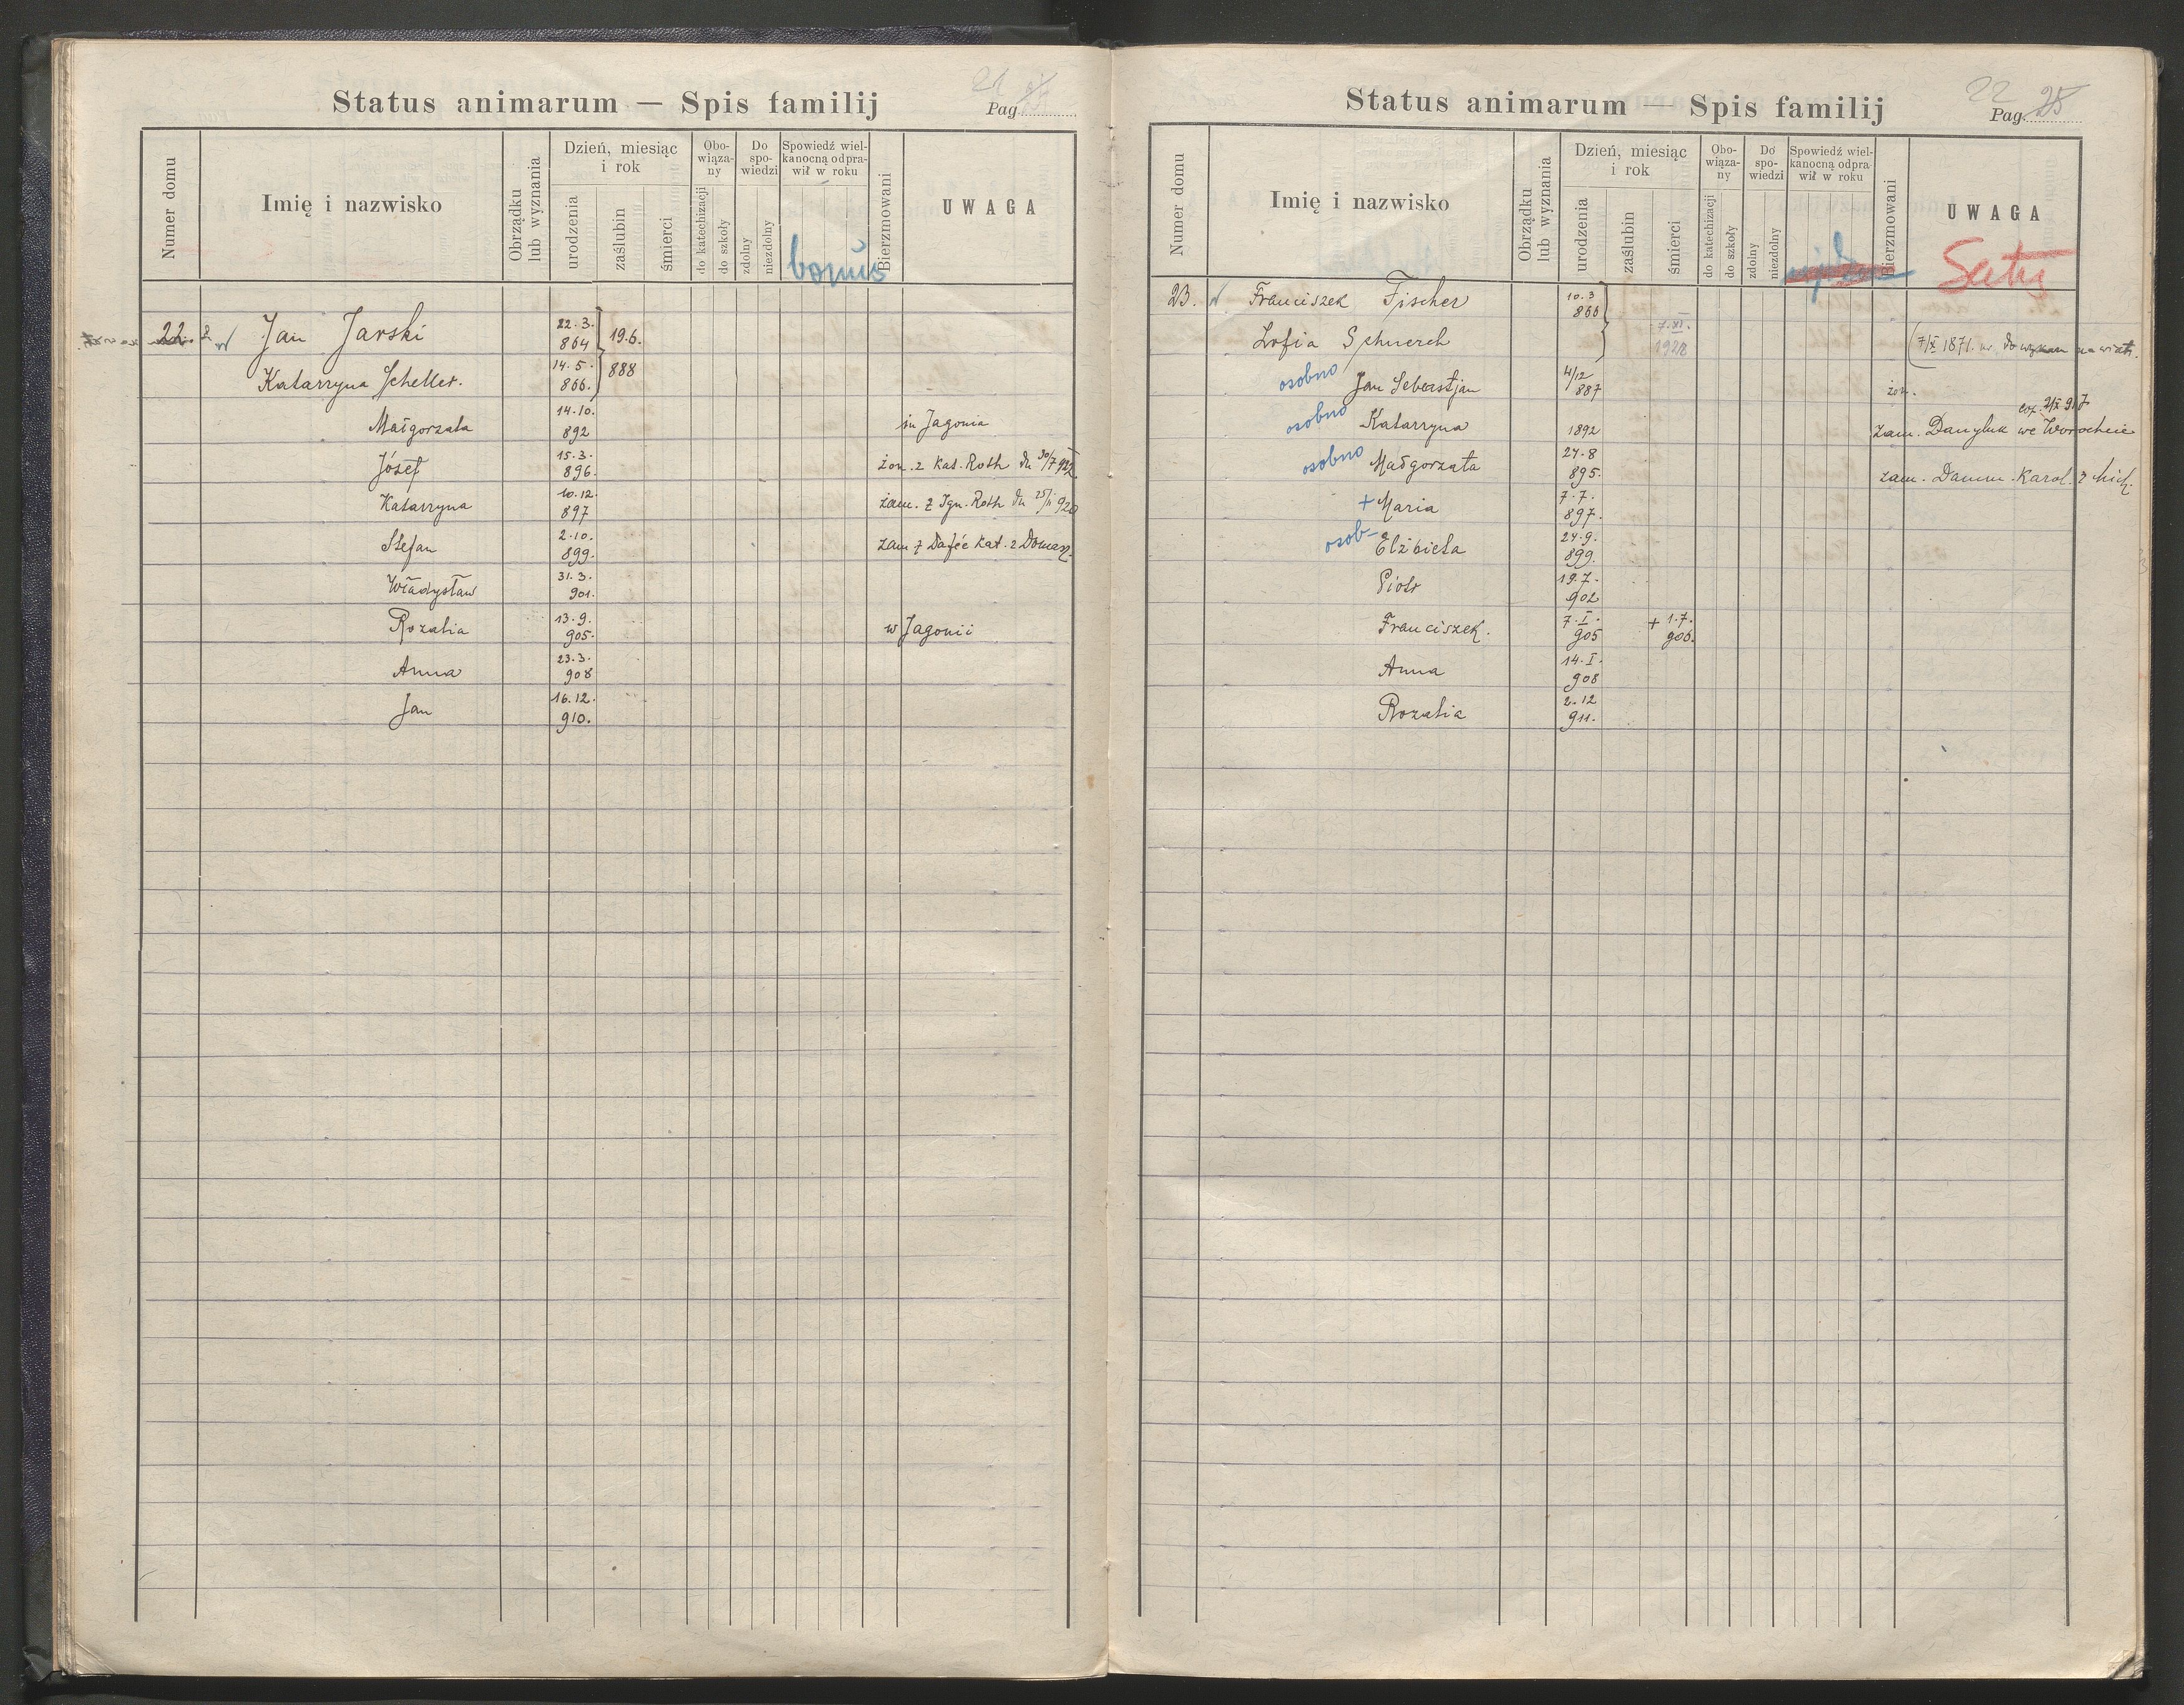 Status animarum — Spis familij
21
Pag.
Numer domu
Imię i nazwisko
Obrządku lub wyznania
Dzień, miesiąc i rok
urodzenia
zaślubin
śmierci
Obowiąza-ny
do katechizacji
do szkoły
Do spo-wiedzi
zdolny
niezdolny
Spowiedź wiel-kanocną odpra-wił w roku
Bierzmowani
UWAGA
bonus
22. Jan Jarski 22.3. 864 19.6.
Katarzyna Scheller. 14.5. 866. 888
Małgorzata 14.10. 892 Jagonia
Józef 15.3. 896. żon. z Kat. Roth du 30/7 922
Katarzyna 10.12. 897 zam. z Ign. Roth du 25/II 920
Stefan 2.10. 899.
Władysław 31.3. 901.
Rozalia 13.9. 905. w Jagonii
Anna 23.3. 908
Jan 16.12. 910.
Status animarum — Spis familij
22
Pag. 25
Numer domu
Imię i nazwisko
Obrządku lub wyznania
Dzień, miesiąc i rok
urodzenia
zaślubin
śmierci
Obo-wiąza-ny
do katechizacji
do szkoły
Do spo-wiedzi
zdolny
niezdolny
Spowiedź wiel-kanocną odpra-wił w roku
Bierzmowani
UWAGA
23. Franciszek Fischer 10.3 866
Zofia Schnerch 7.XI. 1928 7/X 1871.
osobno Jan Sebastjan 4/12 887 żon.
osobno Katarzyna 1892 zam. Danyluk we Worochcie
osobno Małgorzata 27.8 895. zam. Damm Karol. z
+ Maria 7.7. 897.
osob- Elżbieta 24.9. 899.
Piotr 19.7. 902
Franciszek. 7.I. 905 + 1.7. 906.
Anna 14.I. 908
Rozalia 2.12 911.